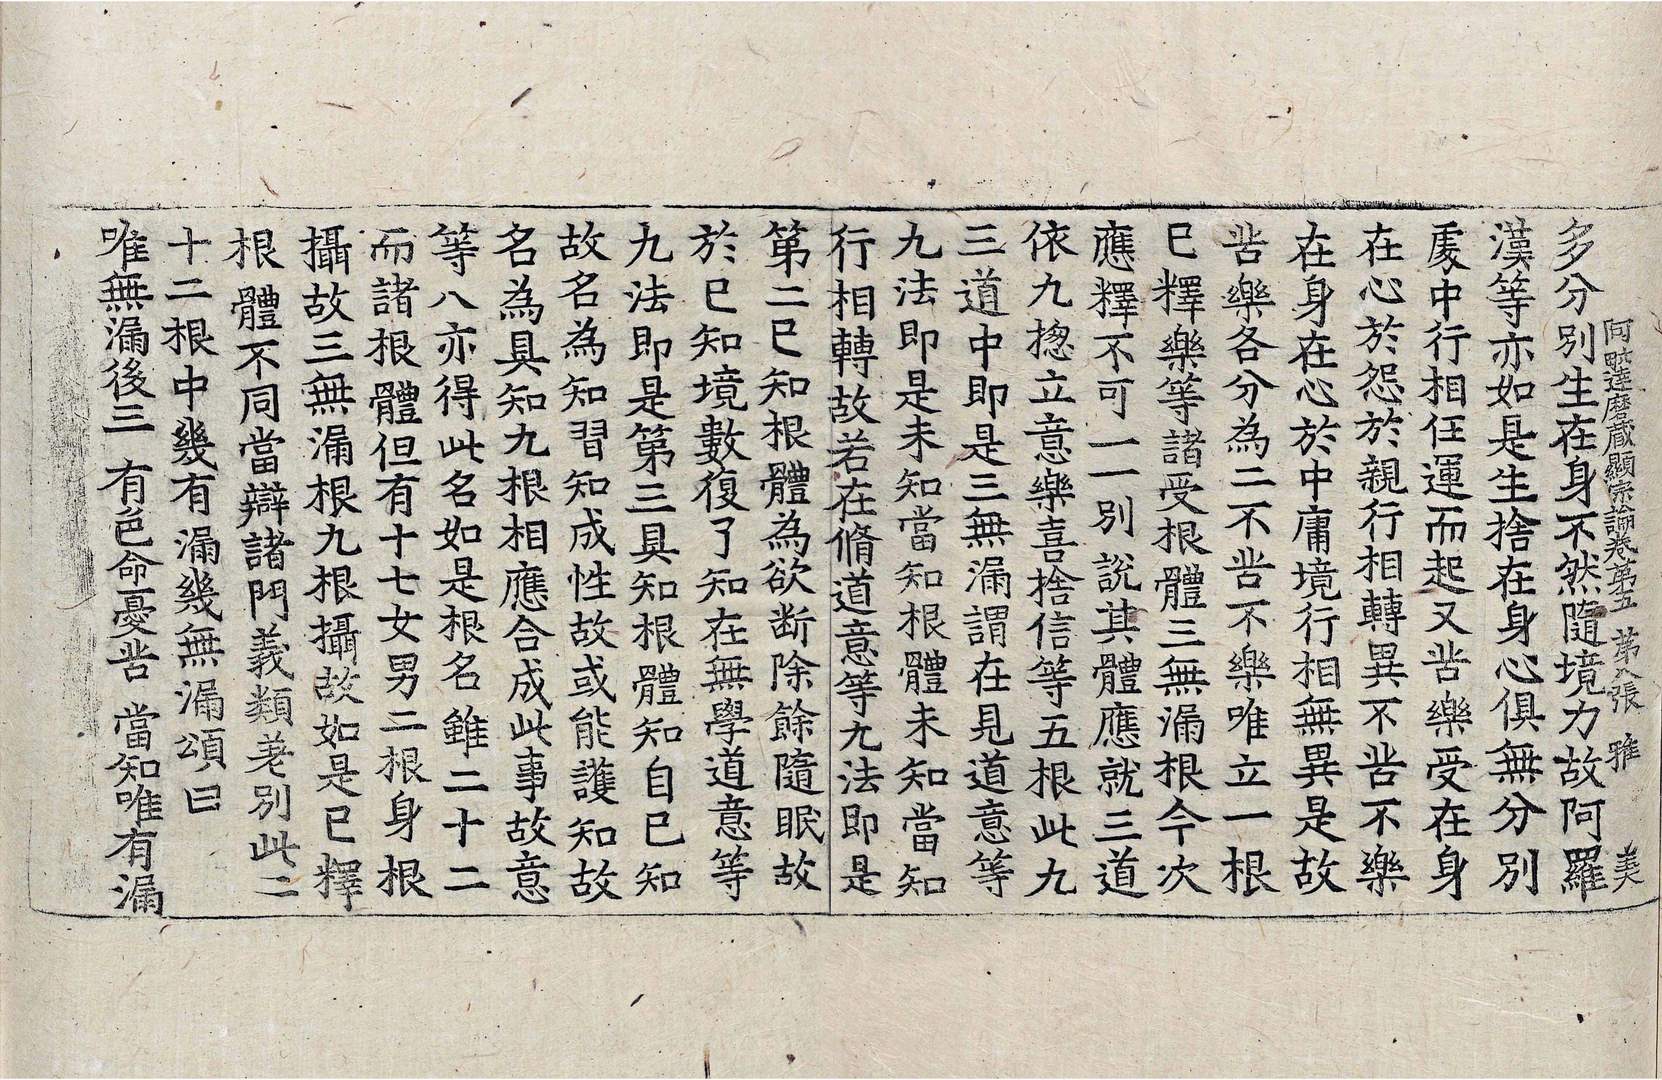 阿毗達磨藏顯宗論卷第五 第八張 雅 美
多分別生在身不然隨境力故阿羅
漢等亦如是生捨在身心俱無分別
處中行相任運而起又苦樂受在身
在心於怨於親行相轉異不苦不樂
在身在心於中庸境行相無異是故
苦樂各分為二不苦不樂唯立一根
已釋樂等諸受根體三無漏根今次
應釋不可一一別說其體應就三道
依九揔立意樂喜捨信等五根此九
三道中即是三無漏謂在見道意等
九法即是未知當知根體未知當知
行相轉故若在脩道意等九法即是
第二已知根體為欲断除餘隨眠故
於已知境數復了知在無學道意等
九法即是第三具知根體知自已知
故名為知習知成性故或能護知故
名為具知九根相應合成此事故意
等八亦得此名如是根名雖二十二
而諸根體但有十七女男二根身根
攝故三無漏根九根攝故如是已釋
根體不同當辯諸門義類差別此二
十二根中幾有漏幾無漏頌曰
唯無漏後三 有色命憂苦 當知唯有漏